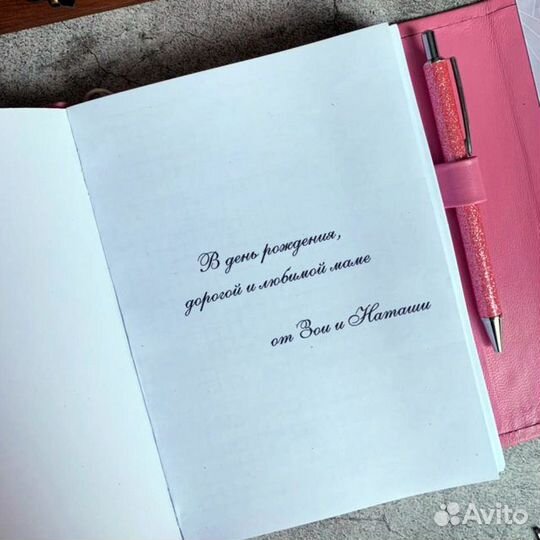 В день рождения,
дорогой и любимой маме
от Зои и Наташи
Avito